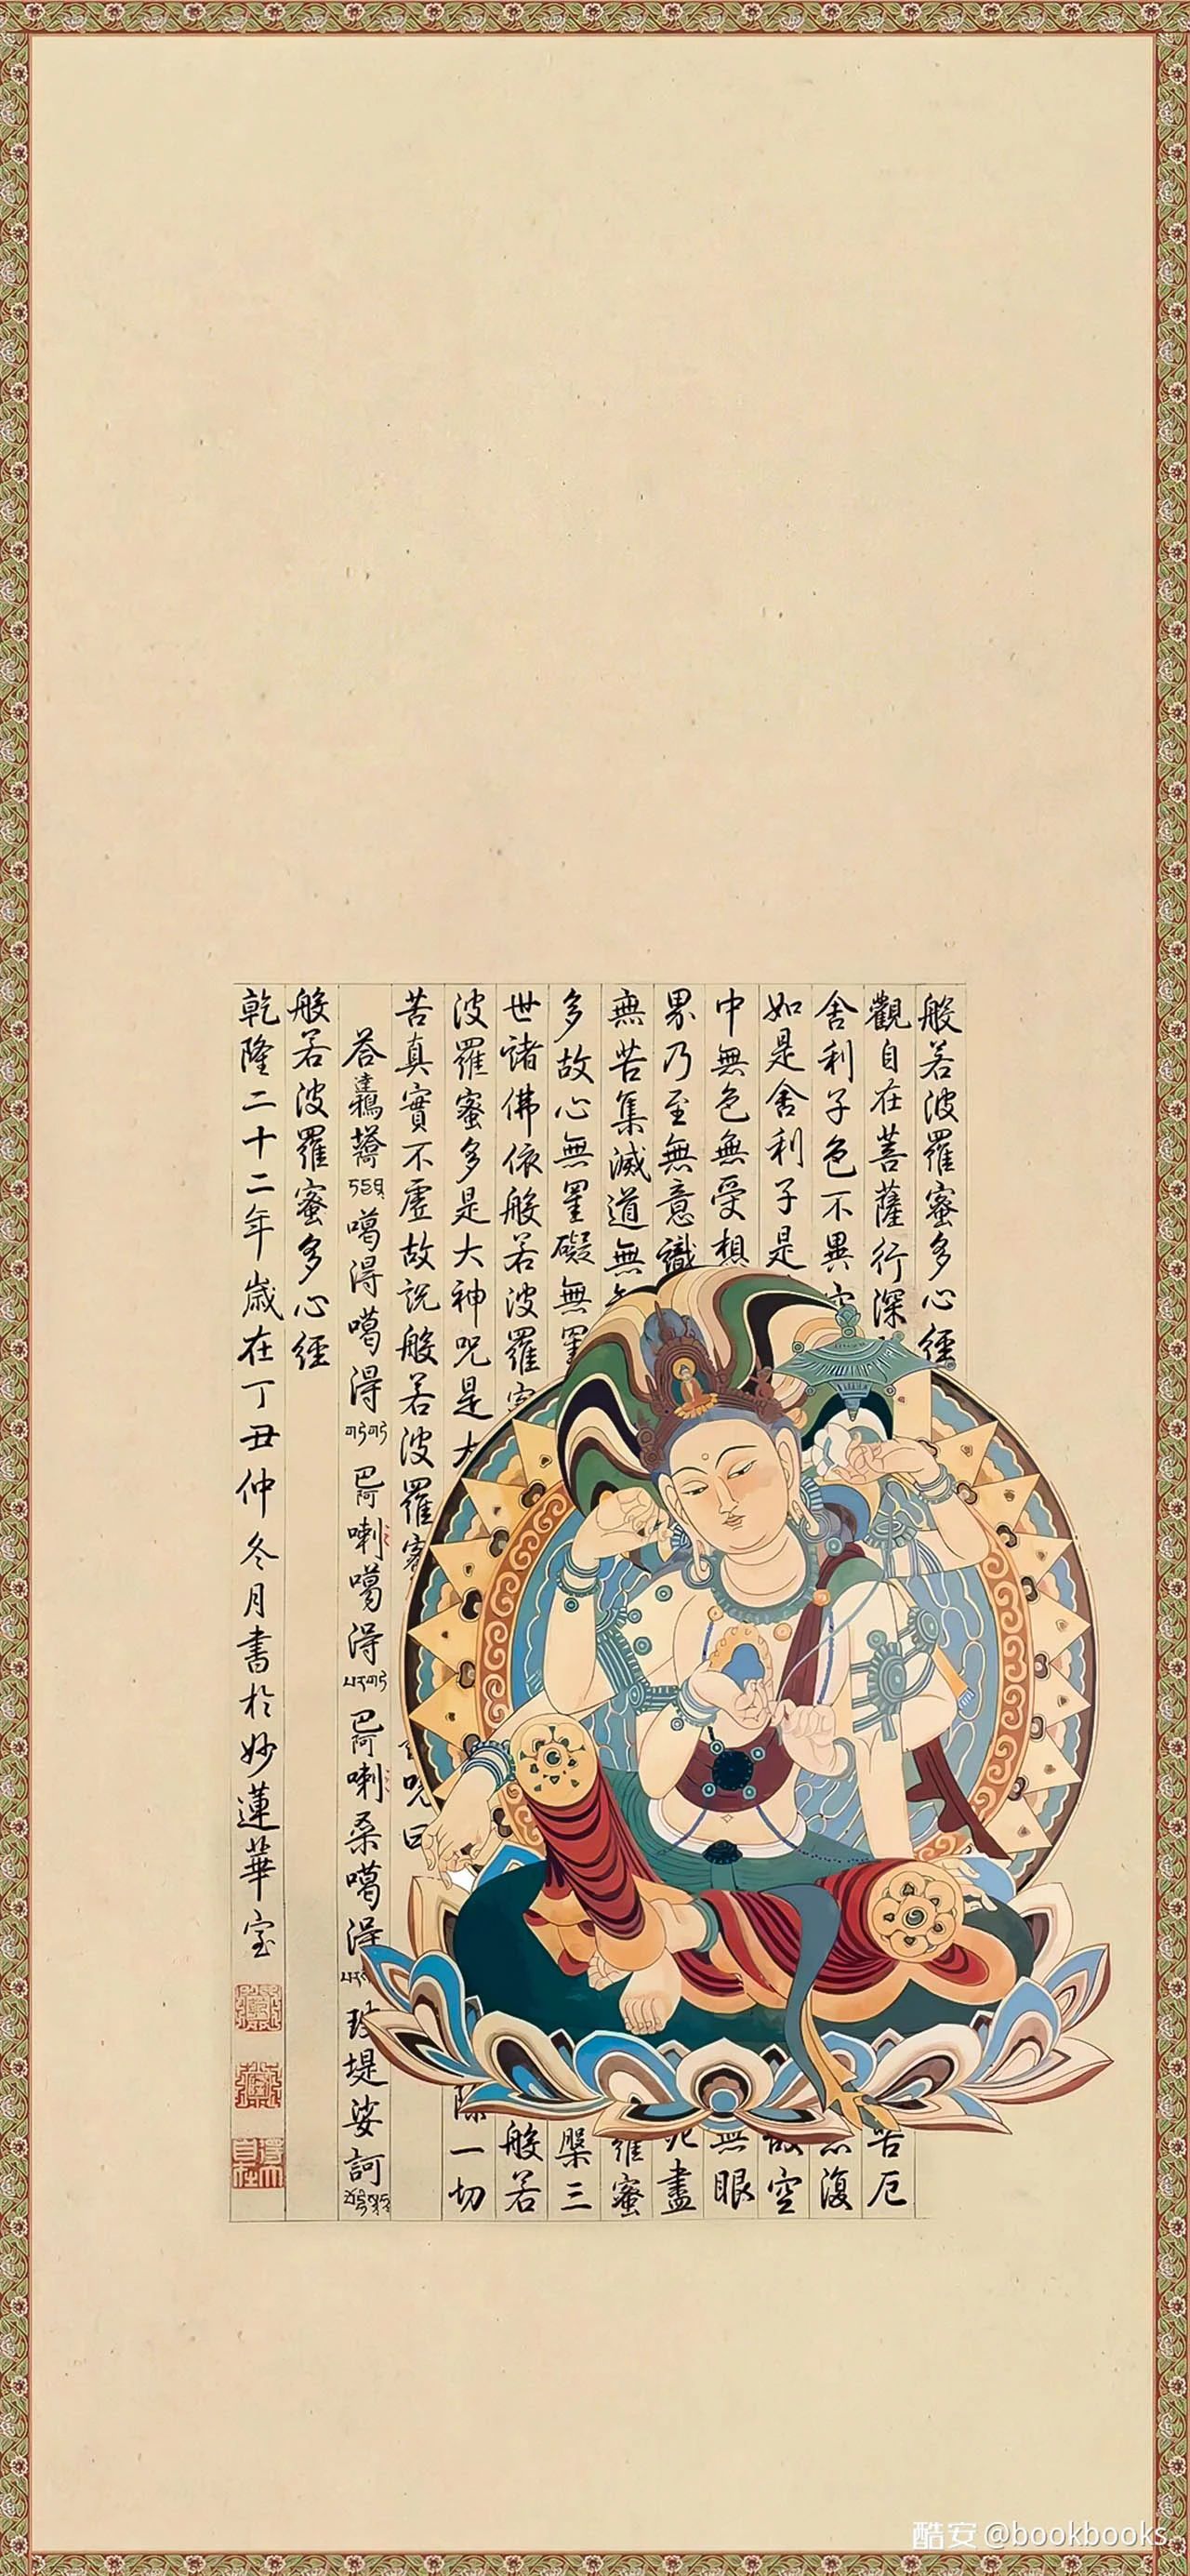 般若波羅蜜多心經
觀自在菩薩行深 苦厄
舍利子色不異空 復
如是舍利子是 故空
中無色無受想 無眼
界乃至無意識 死盡
無苦集滅道無 羅蜜
多故心無罣礙無罣 槃三
世諸佛依般若波羅蜜 般若
波羅蜜多是大神呪是大 除一切
苦真實不虛故說般若波羅蜜 呪曰
噶得噶得 巴阿喇噶得 巴阿喇桑噶得 堤娑訶
般若波羅蜜多心經
乾隆二十二年歲在丁丑仲冬月書於妙蓮華室
酷安 @bookbooks